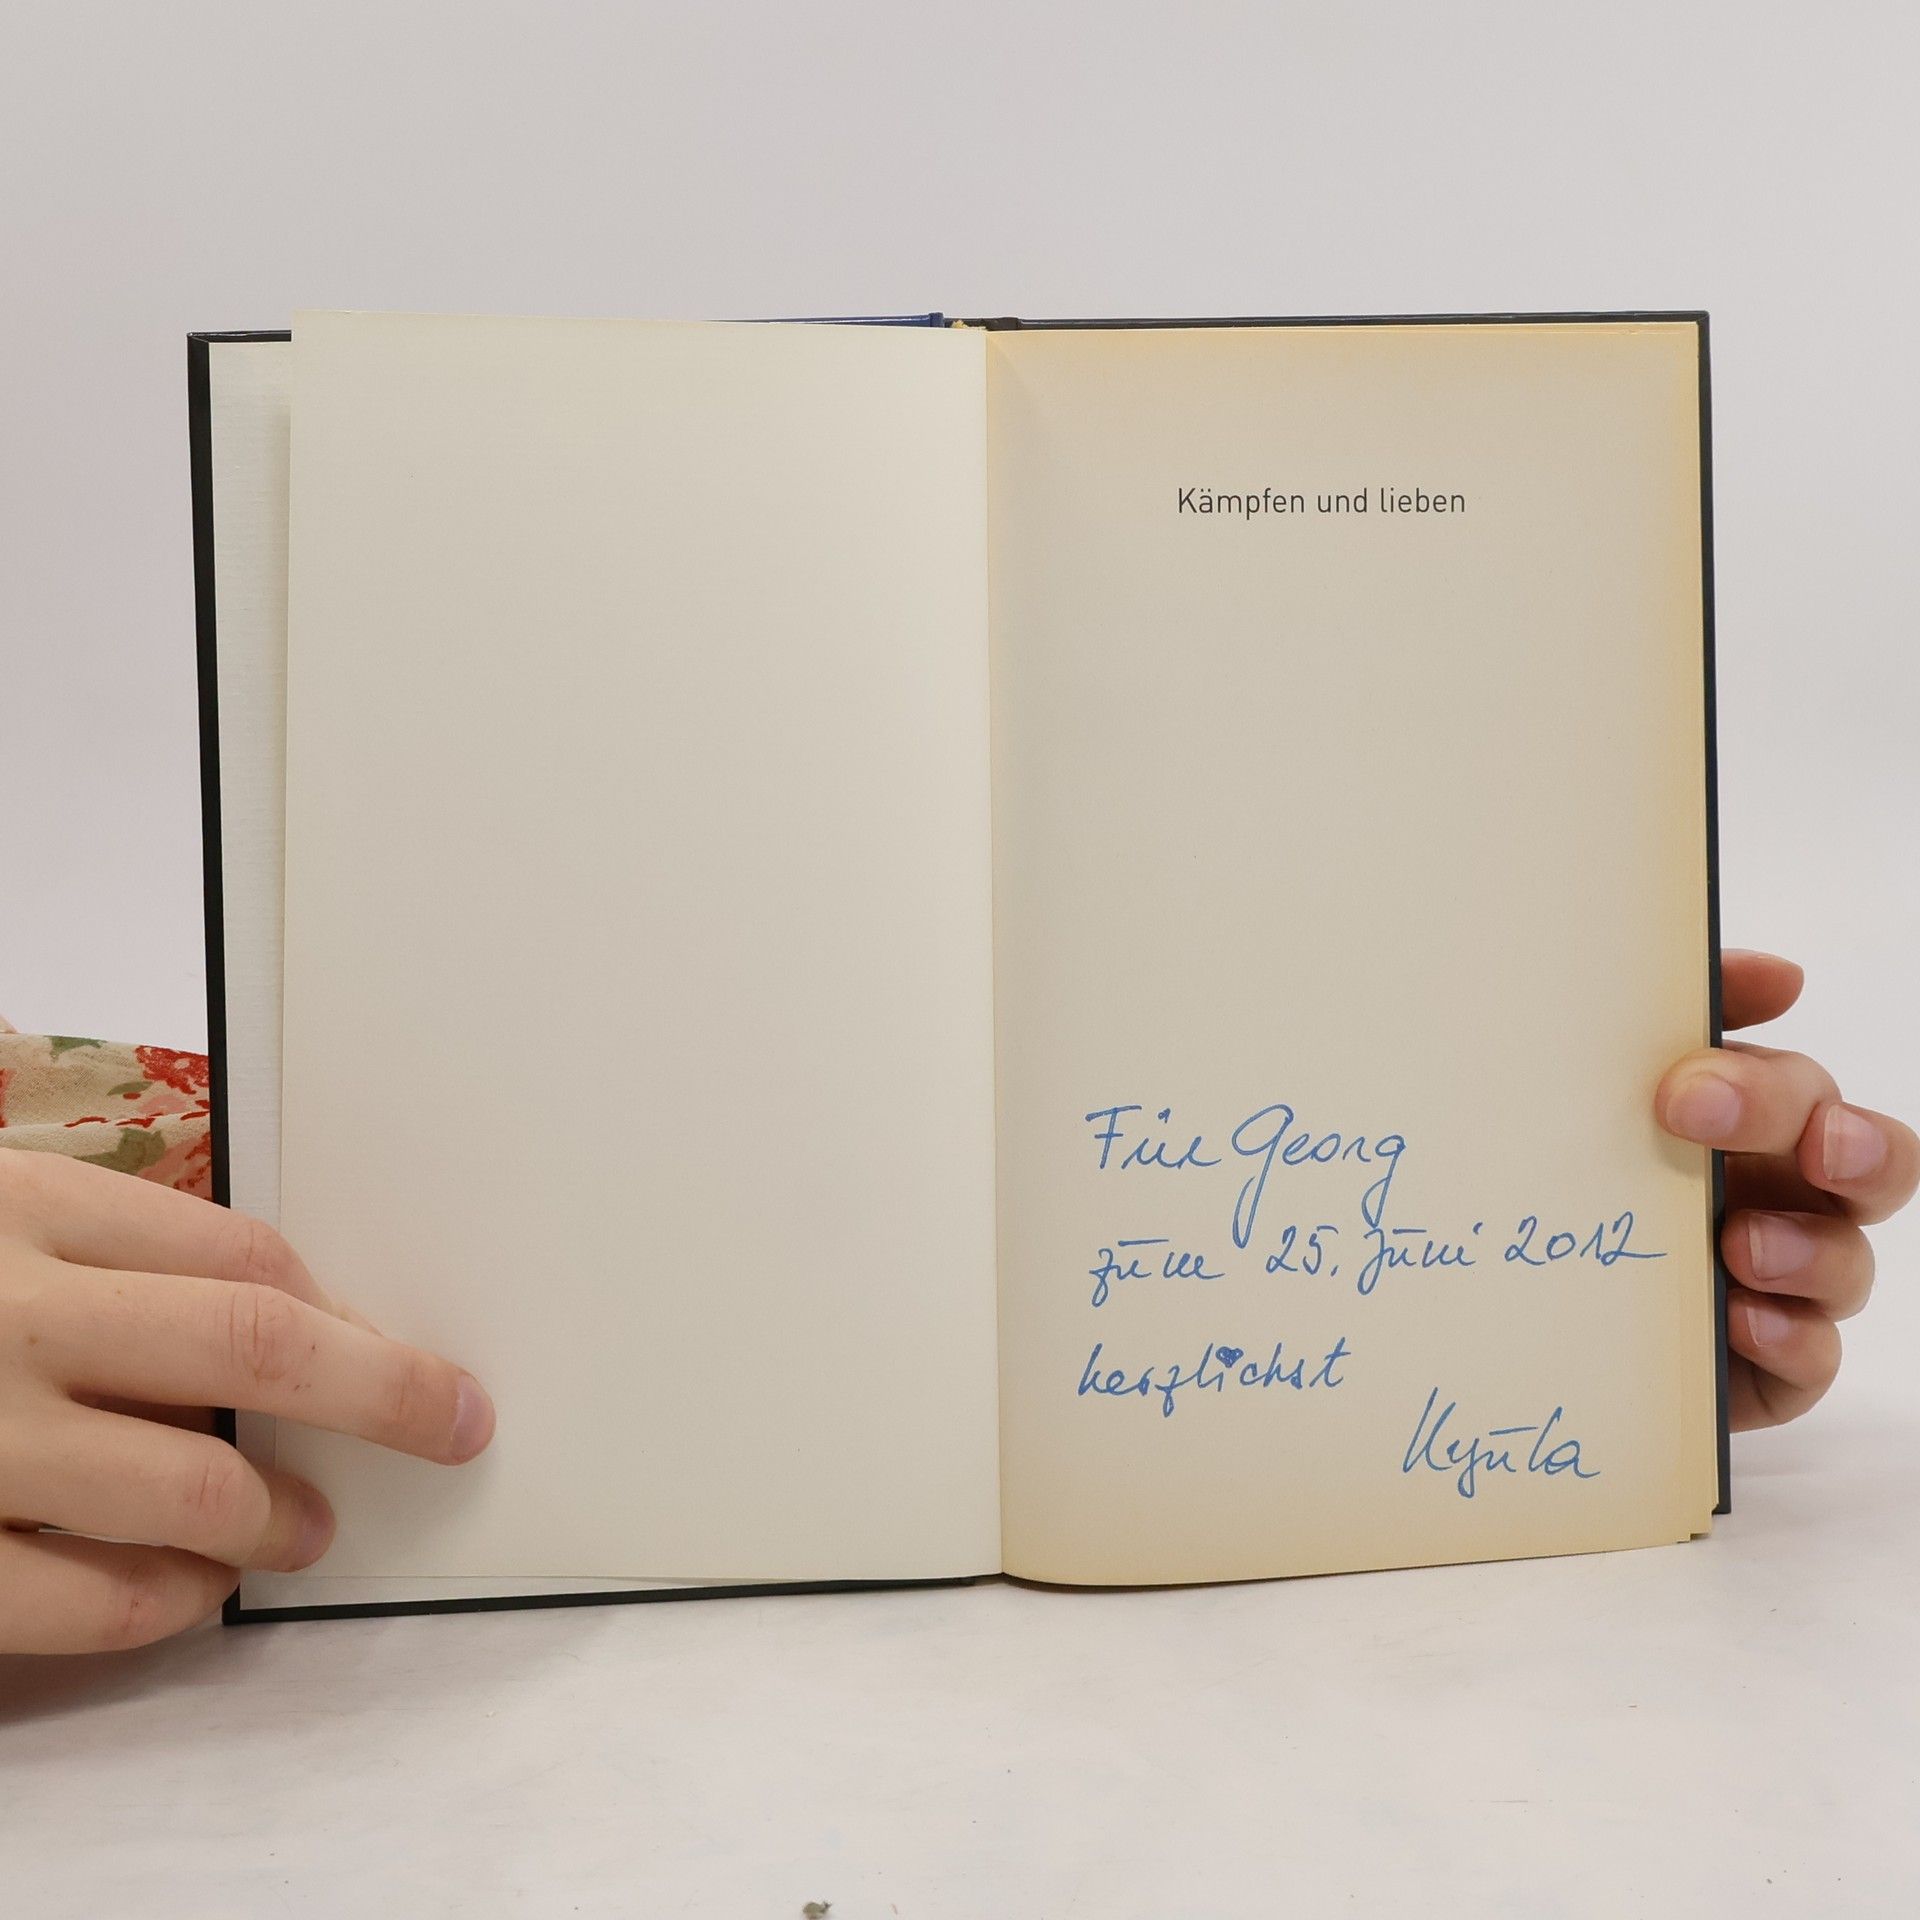 Kämpfen und lieben
Für Georg
zum 25. Juni 2012
herzlichst